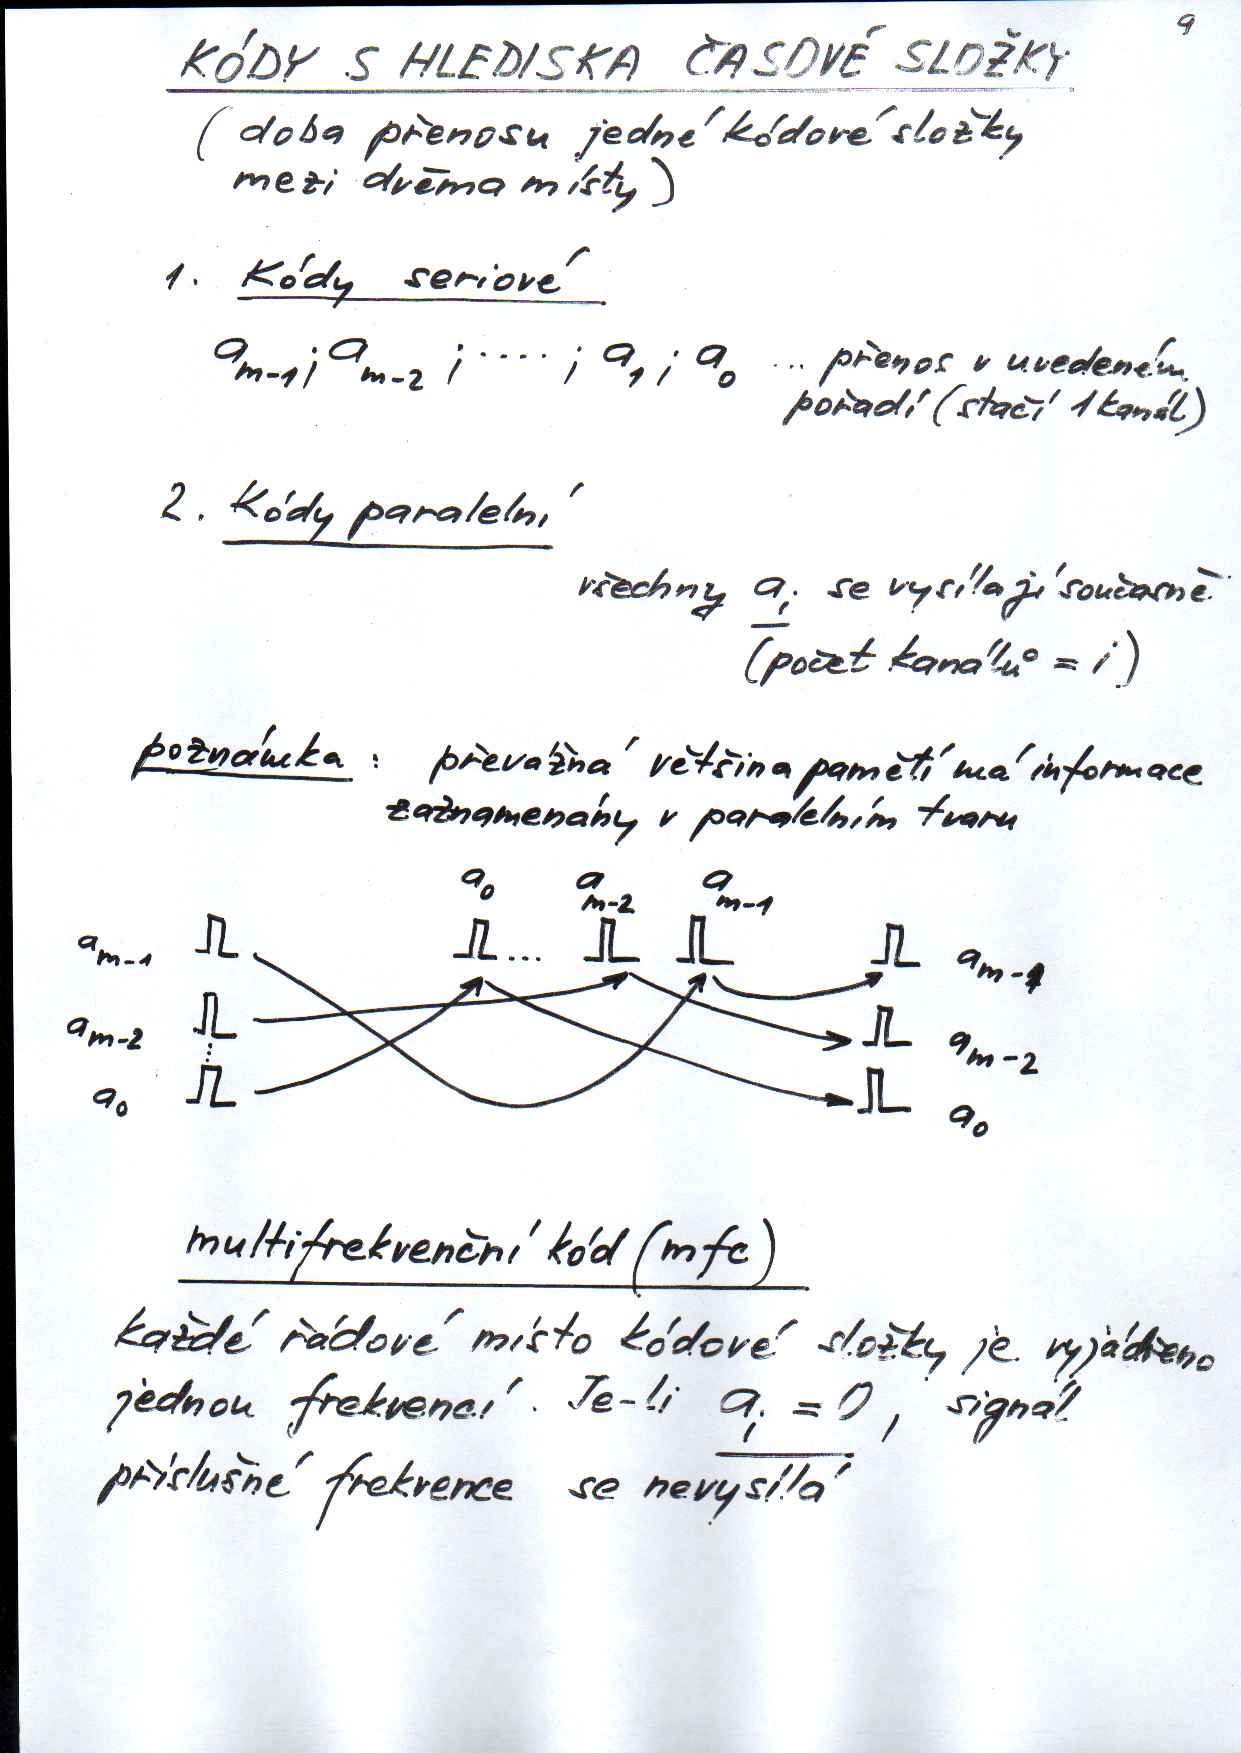 9
KÓDY S HLEDISKA ČASOVÉ SLOŽKY
(doba přenosu jedné kódové složky
mezi dvěma místy)
1. Kódy seriové
a m-1 ; a m-2 ; ..... ; a 1 ; a 0 ... přenos v uvedeném
pořadí (stačí 1 kanál)
2. Kódy paralelní
všechny a i se vysílají současně
(počet kanálů = i)
poznámka : převážná většina pamětí má informace
zaznamenány v paralelním tvaru
a 0 a m-2 a m-1
a m-1 ... a m-1
a m-2 a m-2
a 0 a 0
multifrekvenční kód (mfc)
každé řádové místo kódové složky je vyjádřeno
jednou frekvencí. Je-li a i = 0, signál
příslušné frekvence se nevysílá